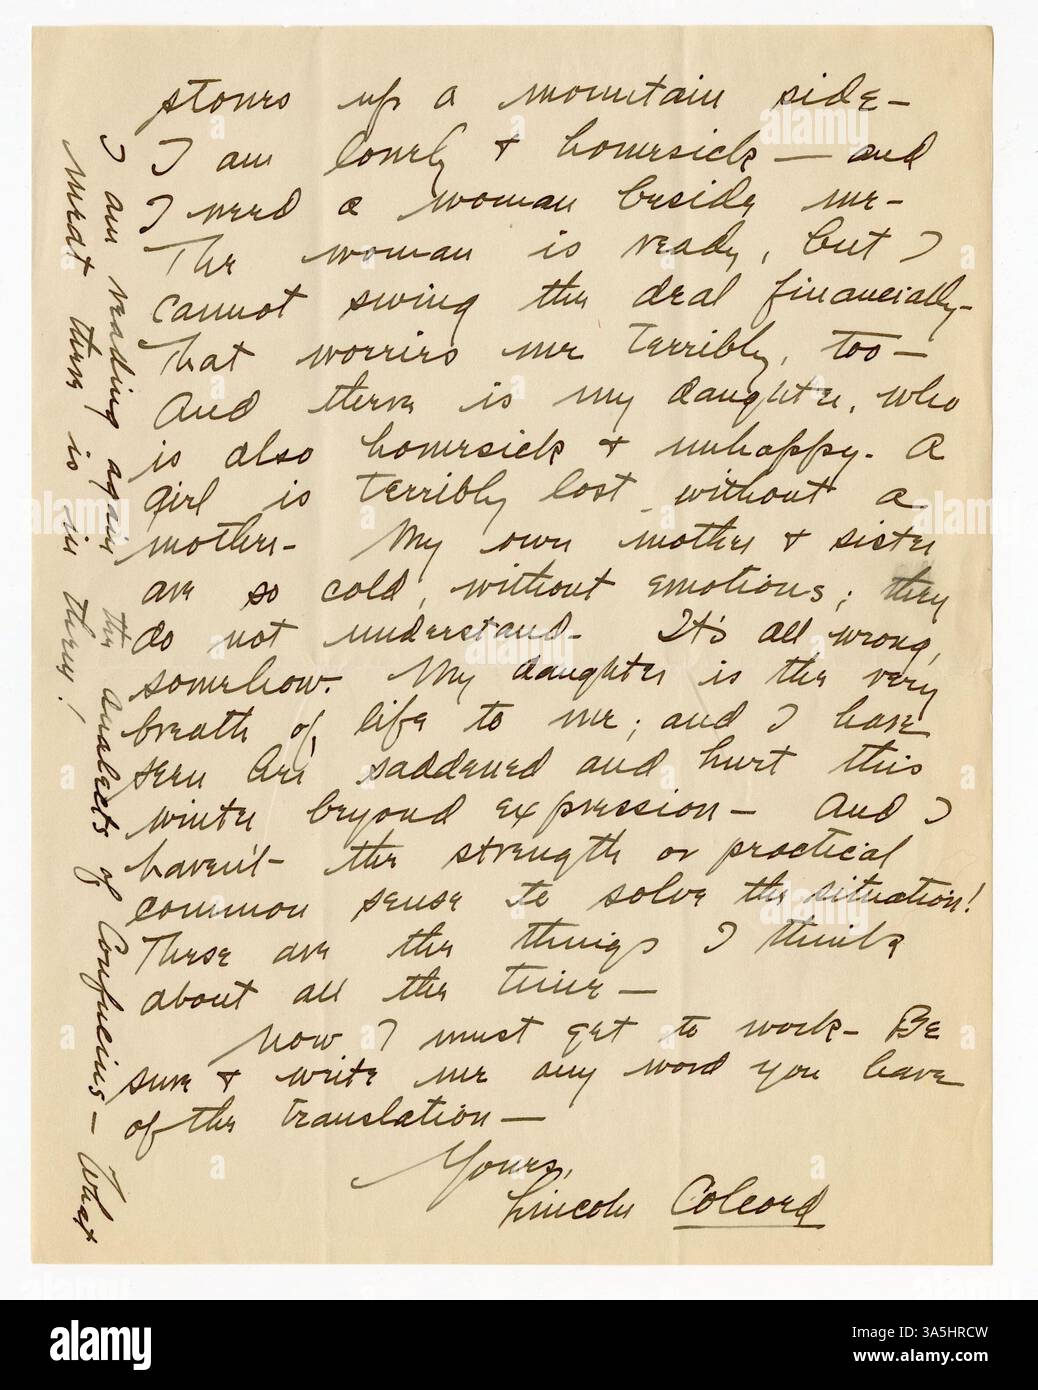 stones up a mountain side—
I am lonely & homesick — and
I need a woman beside me-
The woman is ready, but I
cannot swing the deal financially-
That worries me terribly, too —
And there is my daughter, who
is also homesick & unhappy. A
girl is terribly lost without a
mother- My own mother & sister
are so cold, without emotions; they
do not understand. It's all wrong,
somehow. My daughter is the very
breath of life to me; and I have
seen her saddened and hurt this
winter beyond expression — And I
haven't the strength or practical
common sense to solve the situation!
These are the things I think
about all the time —
Now I must get to work- Be
sure & write me any word you have
of the translation —
Yours,
Lincoln Colcord
I am reading again the analects of Confucius — What
meat there is in them!
alamy
Image ID: A3A5HRCW
www.alamy.com